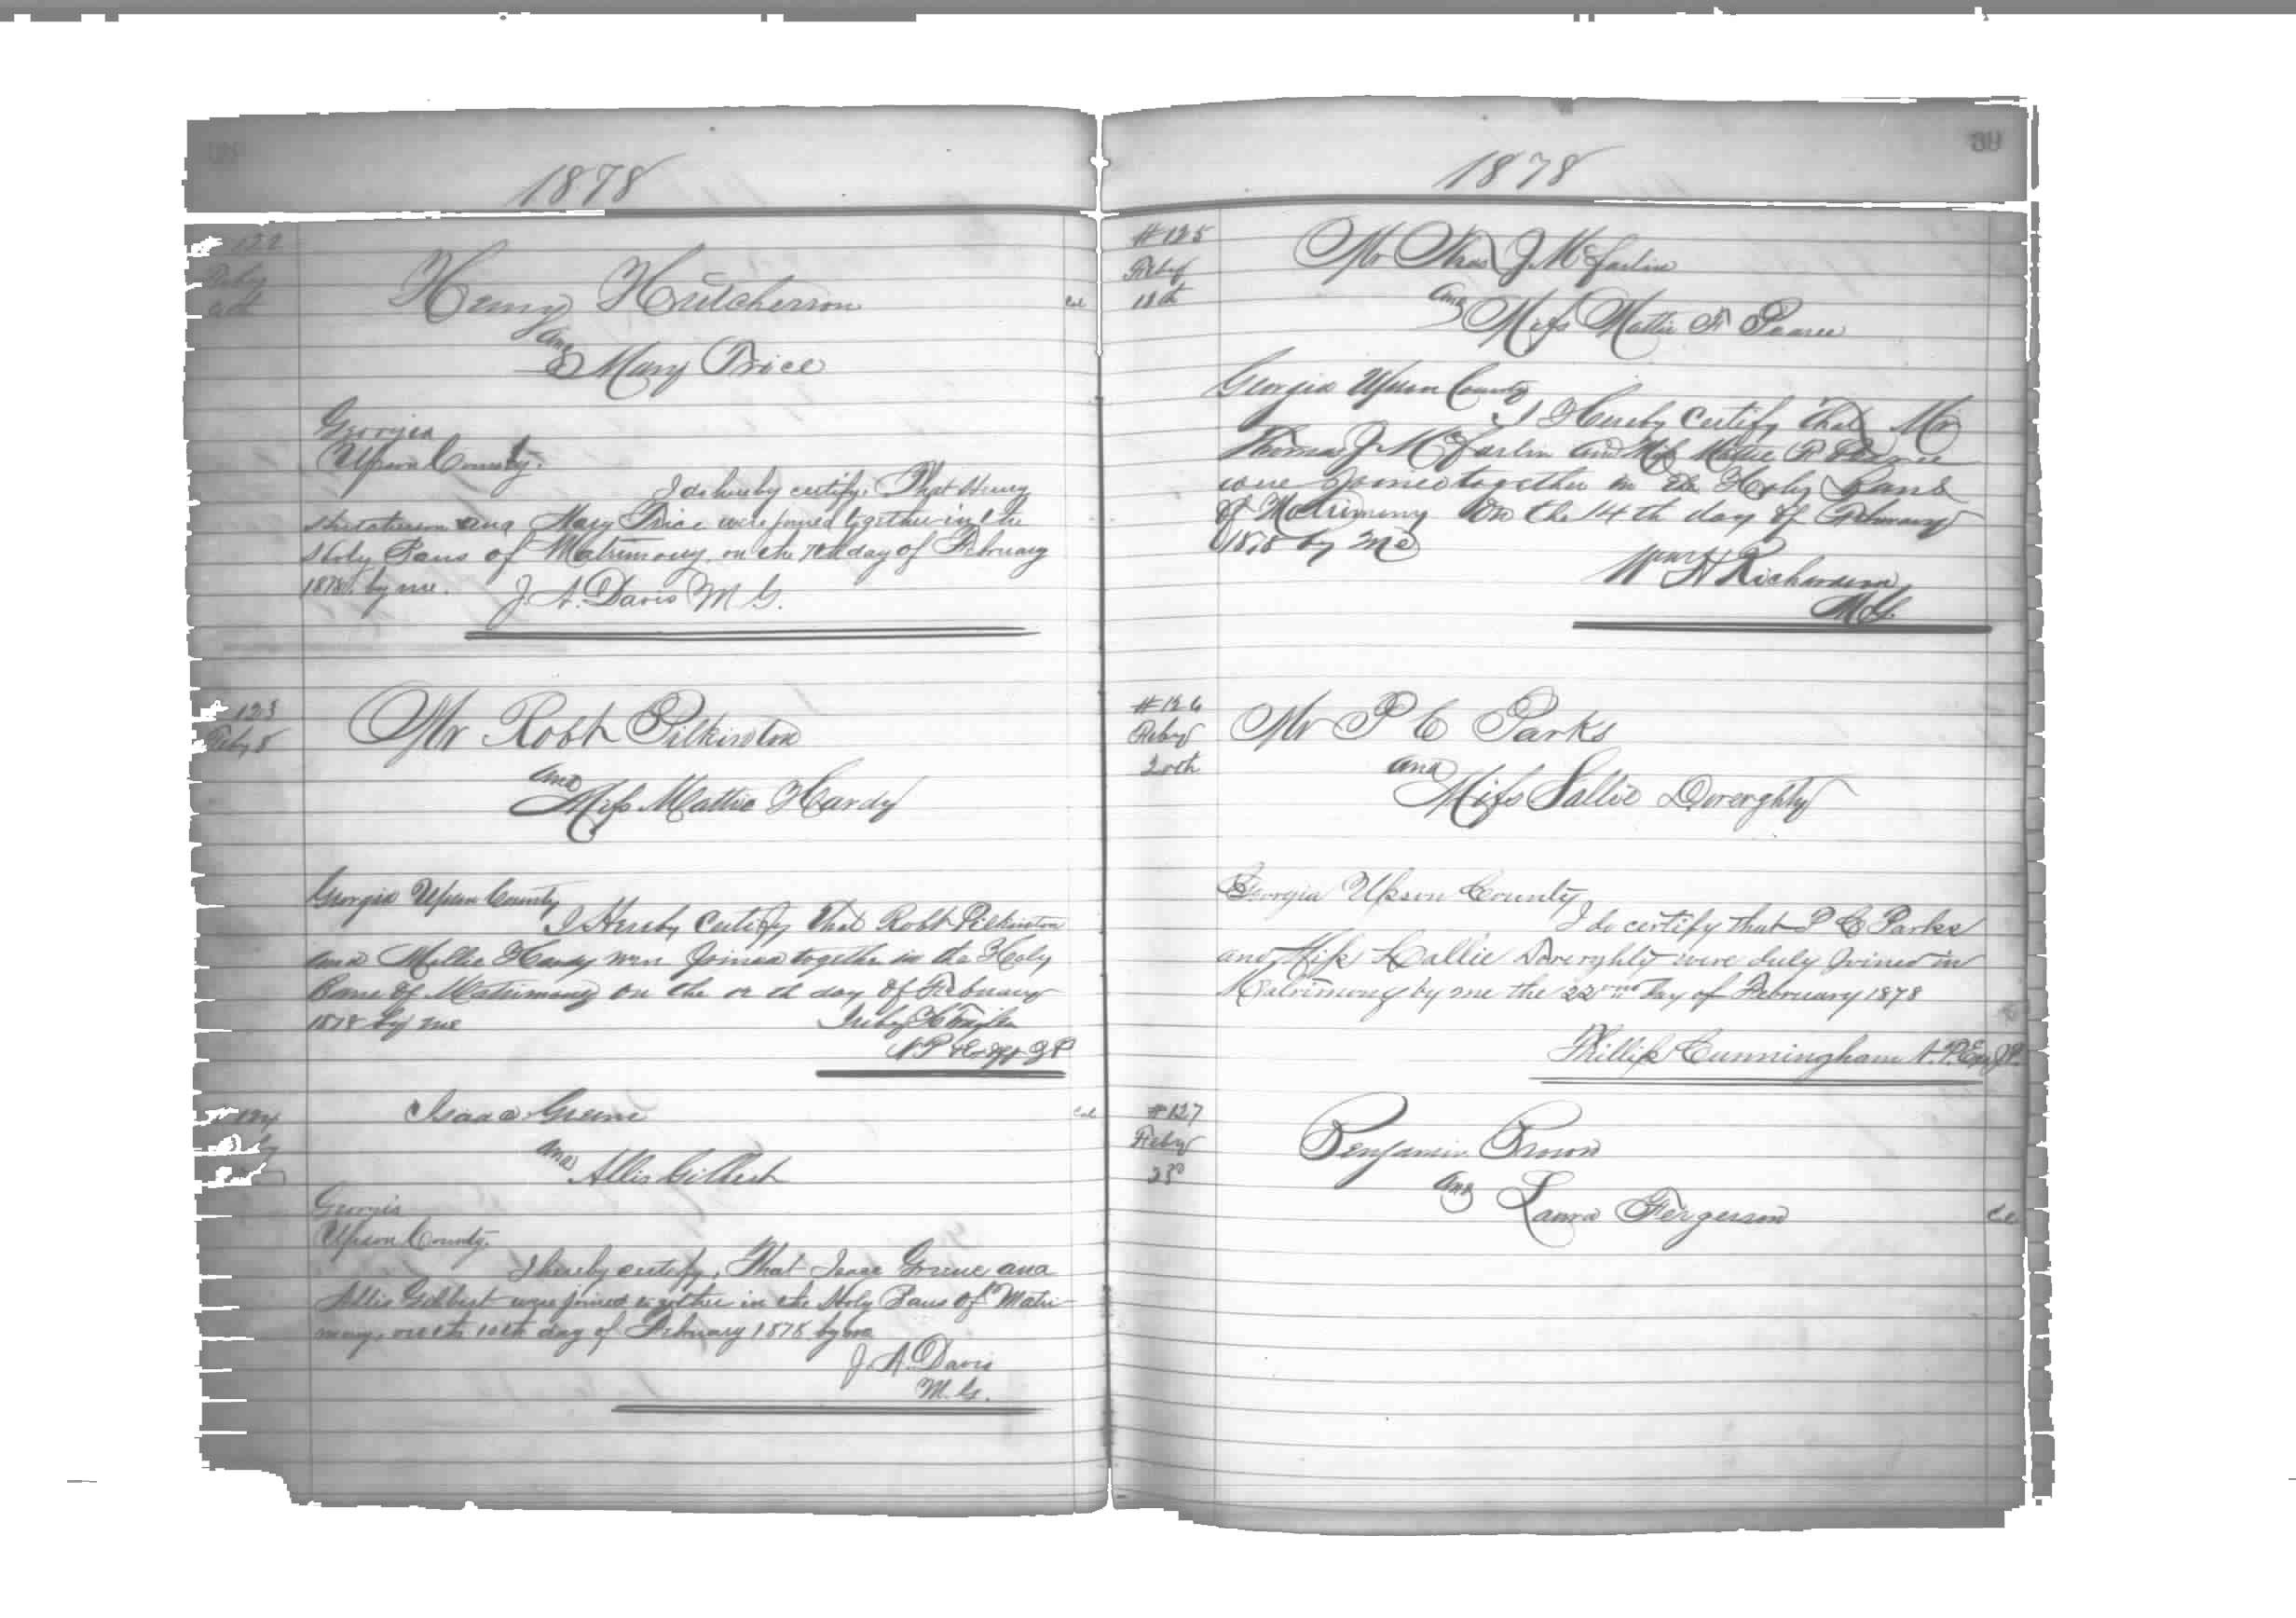 1878
122
Feby
Henry Hutcherson
Col
and
Mary Price
Georgia
Upson County.
I do hereby certify, That Henry
Hutcherson and Mary Price were joined together in the
Holy Bans of Matrimony, on the 7th day of February
1878. by me. J. A. Davis M G.
123
Feby 8
Mr Robt Pilkinton
and
Miss Mattie Hardy
Georgia Upson County
I Hereby Certify That Robt Pilkinton
and Mollie Hardy were Joined together in the Holy
Bane of Matrimony on the th day of February
1878 by me
J P
124
Isaac Greene
Col
and
Allis Gilbert
Georgia
Upson County.
I hereby certify, That Isaac Greene and
Allis Gilbert were joined together in the Holy Bans of Matri
mony, on the 10th day of February 1878 by me
J. A. Davis
M. G.
1878
39
#125
Feby
Mr Thos J McFarlin
and
Miss Mattie F Pearce
Georgia Upson County
I Hereby Certify that Mr
Thomas J McFarlin and Miss Mattie F Pearce
were Joined together in the Holy Bans
of Matrimony On the 14th day of February
1878 by Me
Wm H Richardson
M G.
#126
Feby
20th
Mr P C Parks
and
Miss Sallie Dorerghly
Georgia Upson County
I do certify that P C Parks
and Miss Sallie Dorerghly were duly Joined in
Matrimony by me the 22nd Day of February 1878
Phillip Cunningham N. P. Ex J.P.
#127
Feby
23d
Benjamin Brown
and
Laura Fergerson
Col